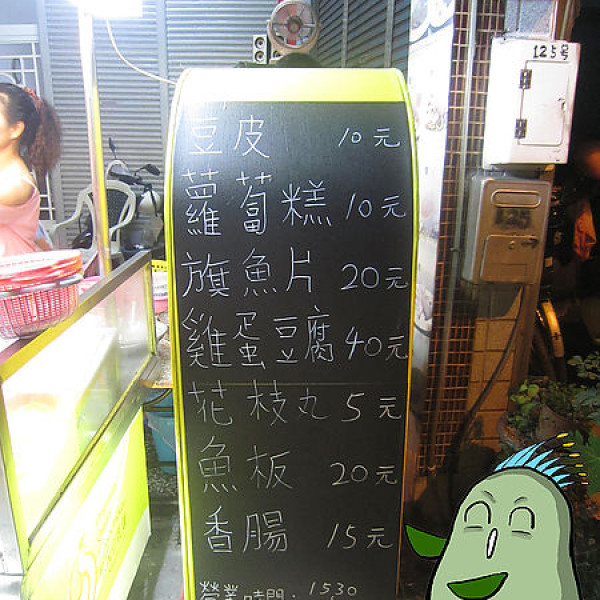 125号
125
豆皮 10元
蘿蔔糕 10元
旗魚片 20元
雞蛋豆腐 40元
花枝丸 5元
魚板 20元
香腸 15元
營業時間: 1530